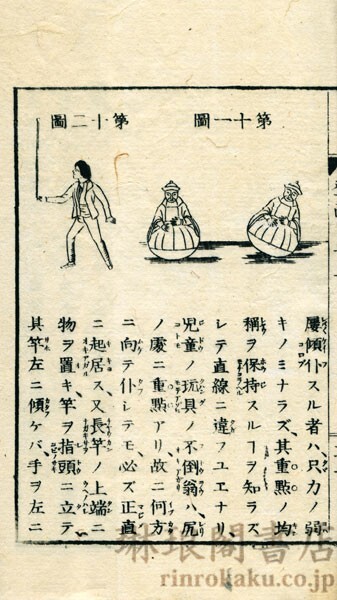 第十一圖
第十二圖
屢傾仆スル者ハ只力ノ弱
キノミナラズ其重點ノ均
稱ヲ保持スルヿヲ知ラズ
シテ直線ニ違フユエナリ
兒童ノ玩具ノ不倒翁ハ尻
ノ處ニ重點アリ故ニ何方
ニ向テ仆レテモ必ズ正直
ニ起居ス又長竿ノ上端ニ
物ヲ置キ竿ヲ指頭ニ立テ
其竿左ニ傾ケバ手ヲ左ニ
琳琅閣書店
rinrokaku.co.jp